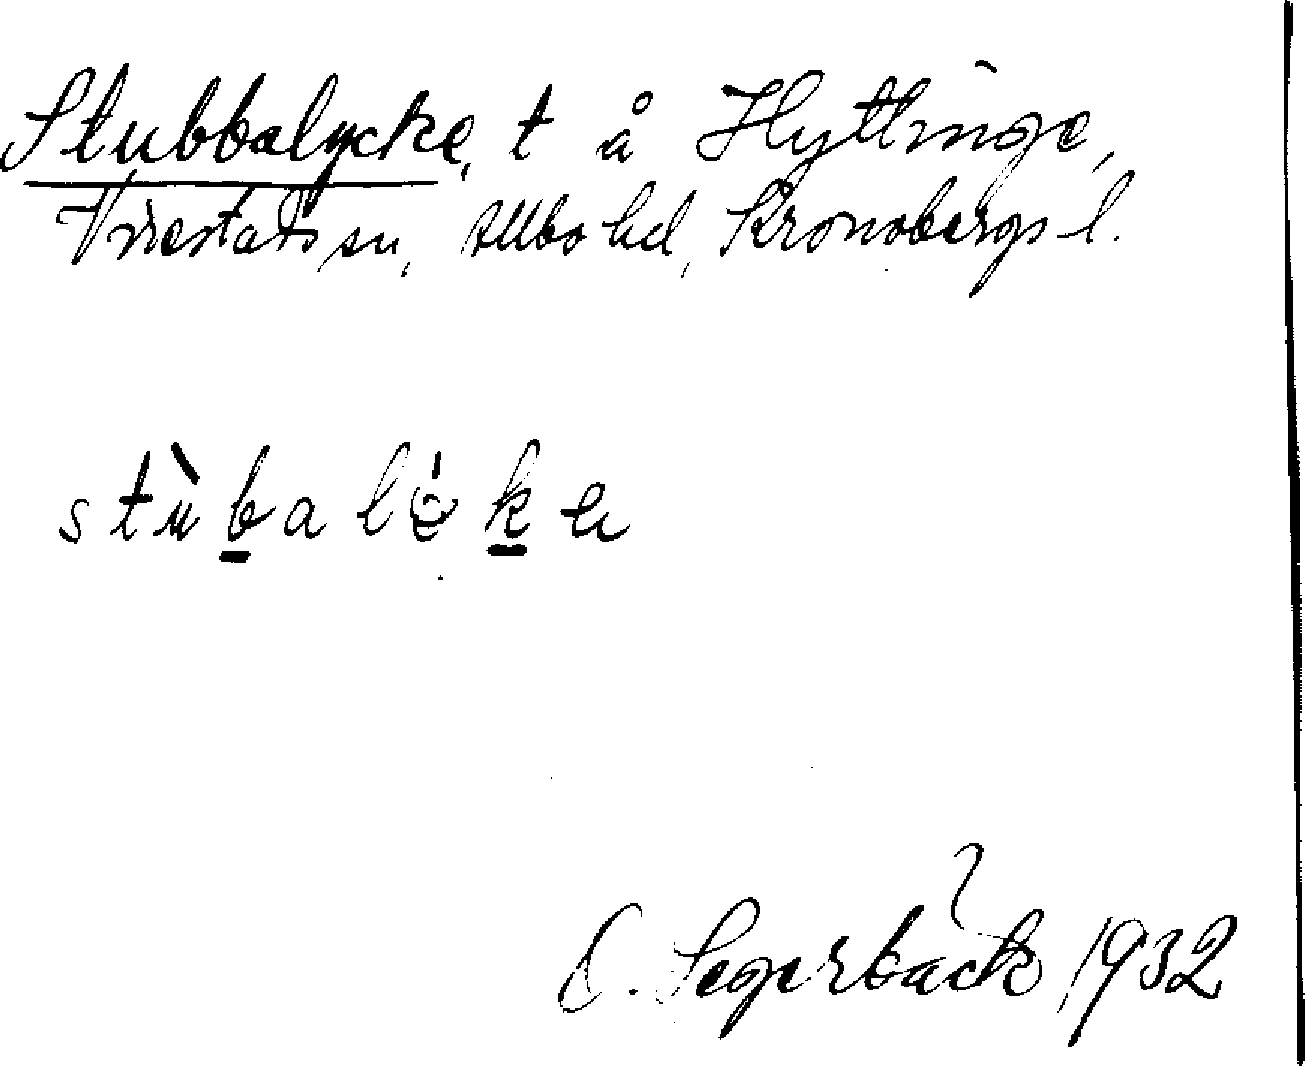 Stubbalycke, t å Hyttinge,
Vriestads sn, Allbo hd, Kronobergs l.
stùbalö́ke
O. Segerbäck 1932